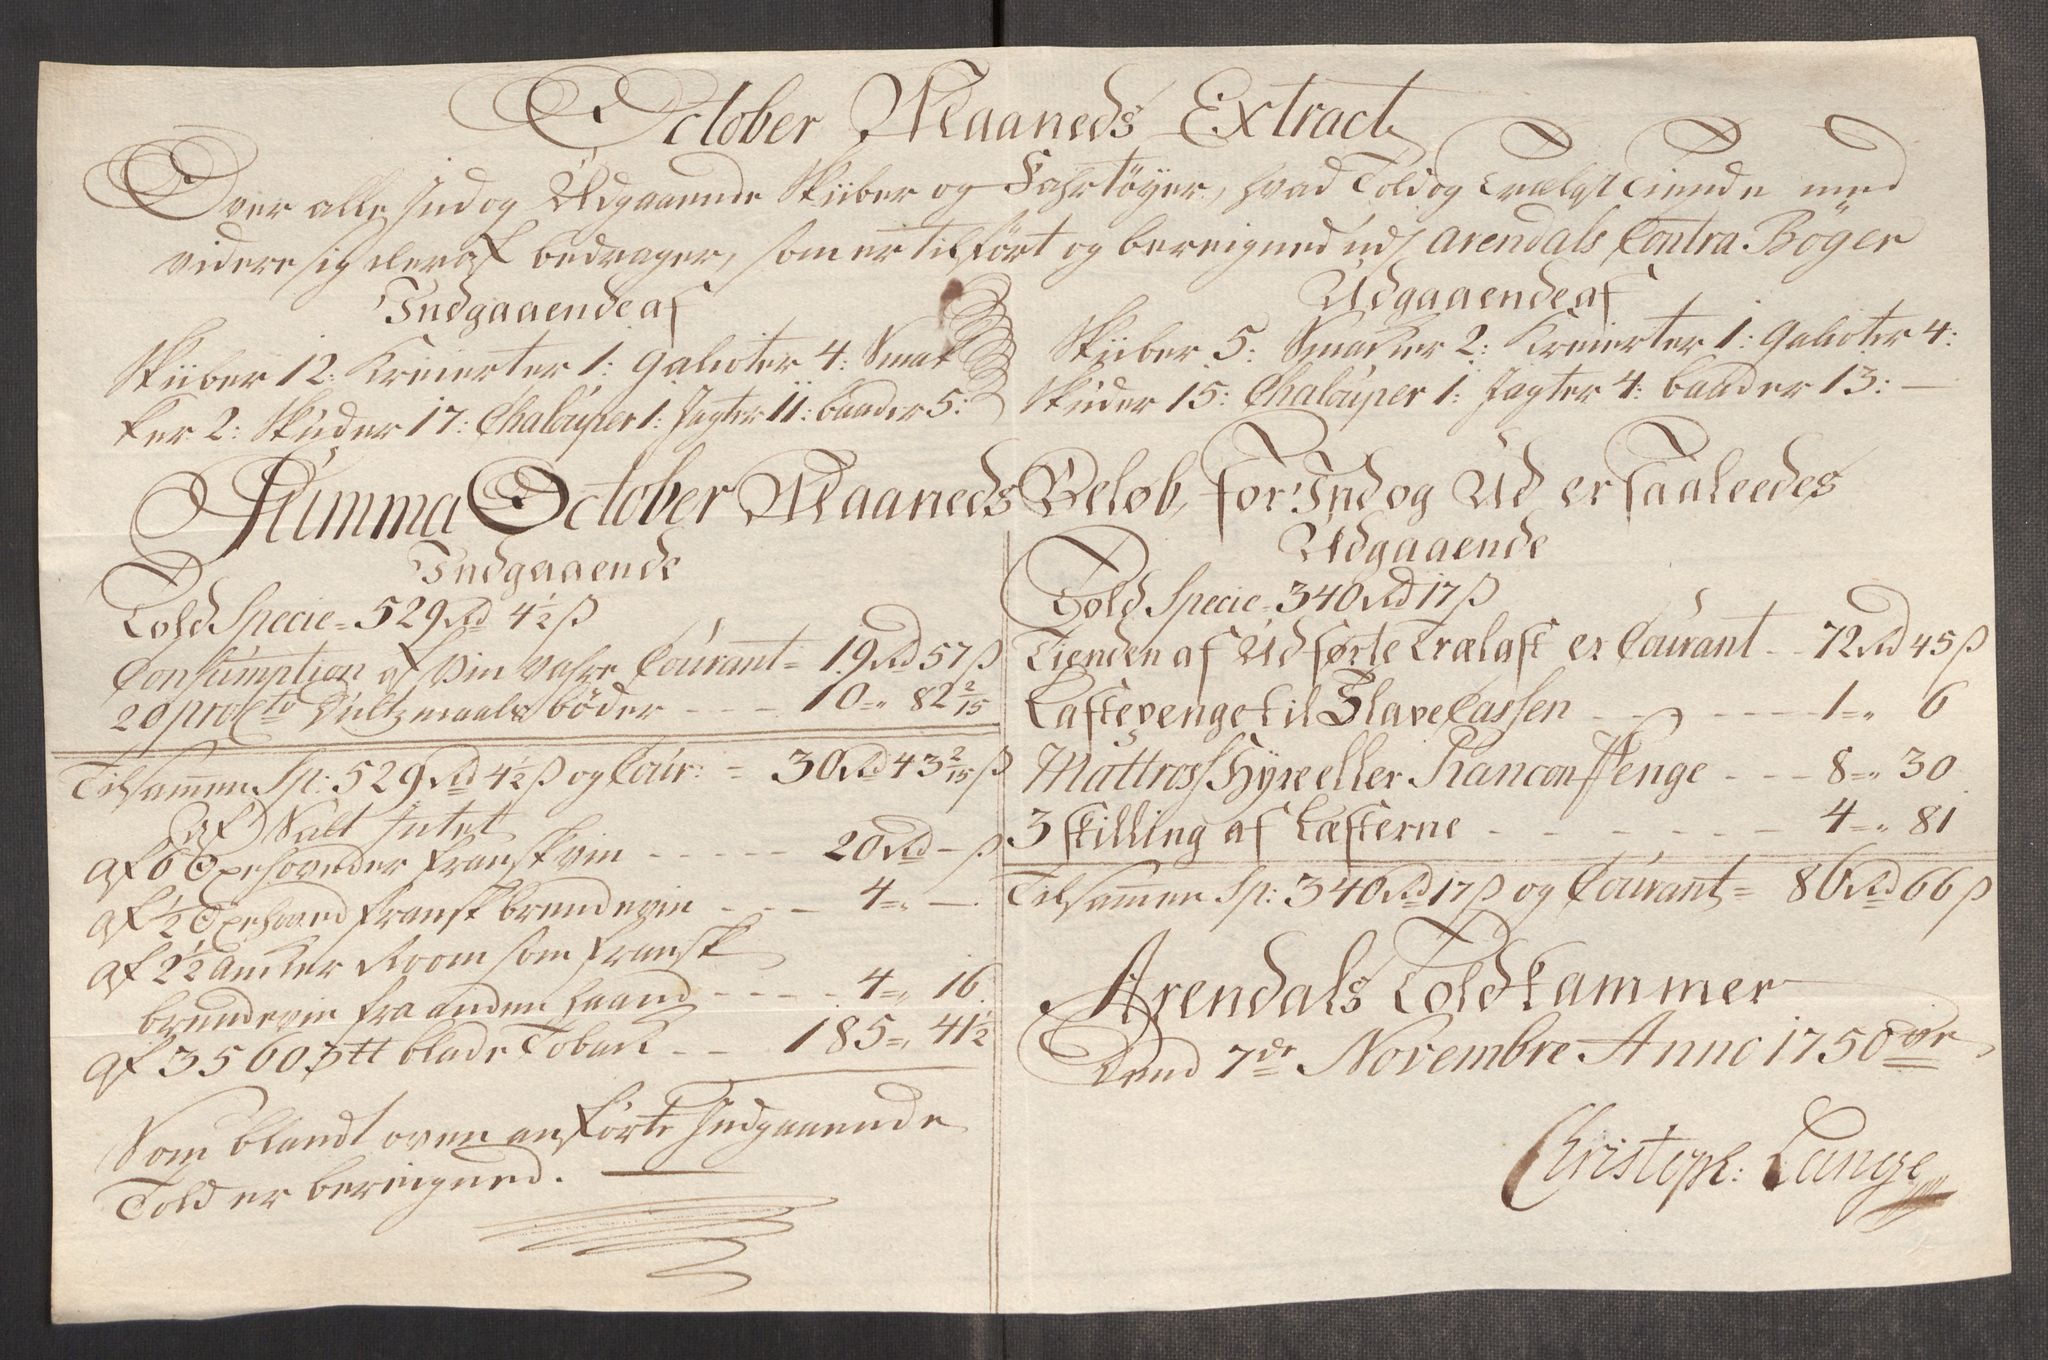 October Maaneds Extract
Over alle Ind og Udgaaende Skiber og Fahrtøyer, hvad Told og Trælast Tiende med
videre sig deraf bedrager, som er tilført og bereigned udj Arendals Contra Böger
Indgaaende af
Skiber 12: Kreierter 1: galioter 4: Smak
ker 2: Skuder 17: Chalouper 1: Jagter 11: baader 5:
Udgaaende af
Skiber 5: Smakker 2: Kreierter 1: galioter 4:
Skuder 15: Chalouper 1: Jagter 4: baader 13:
Summa October Maaneds Beløb, for Ind og Ud er saaleedes
Indgaaende
Told Specie = 529 rd 4½ ß
Consumption af Viin vahre Courant = 19 rd 57 ß
20 pro Cto böder - - - 10 =" 82 2/15
Tilsammen Sp: 529 rd 4½ ß og Cour: = 30 rd 43 2/15 ß
af Salt Intet
af 6 Oxehoveder fransk viin - - - - - 20 rd - ß
af ½ Oxehoved fransk brendeviin - - - 4 =" -
af 2½ Ancker Room som fransk
brendeviin fra anden haand - - - - 4 =" 16
af 35603 tt blade Toback - - 185 =" 41½
Som blandt oven anførte Indgaaende
Told er bereigned.
Udgaaende
Told Specie = 340 rd 17 ß
Tienden af Udførte Trælast er Courant - - 72 rd 45 ß
Lastepenge til Slave Cassen - - - - - - 1 =" 6
Mattross Hyre eller Rancon Penge - - - 8 =" 30
3 skilling af Læsterne - - - - - - - 4 =" 81
Tilsammen Sp: 340 rd 17 ß og Courant = 86 rd 66 ß
Arendals Told Kammer
Dend 7de Novembre Anno 1750
Christoph: Lange